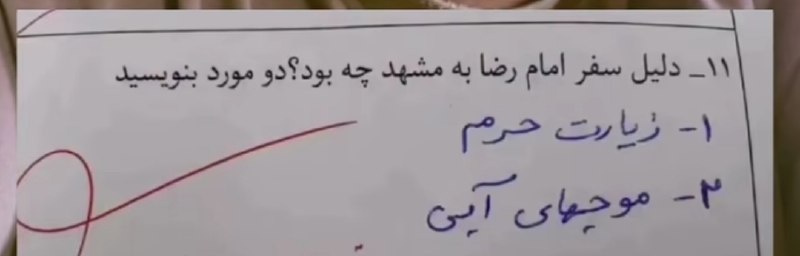 ۱۱_ دلیل سفر امام رضا به مشهد چه بود؟دو مورد بنویسید
۱- زیارت حرم
۲- موجهای آبی